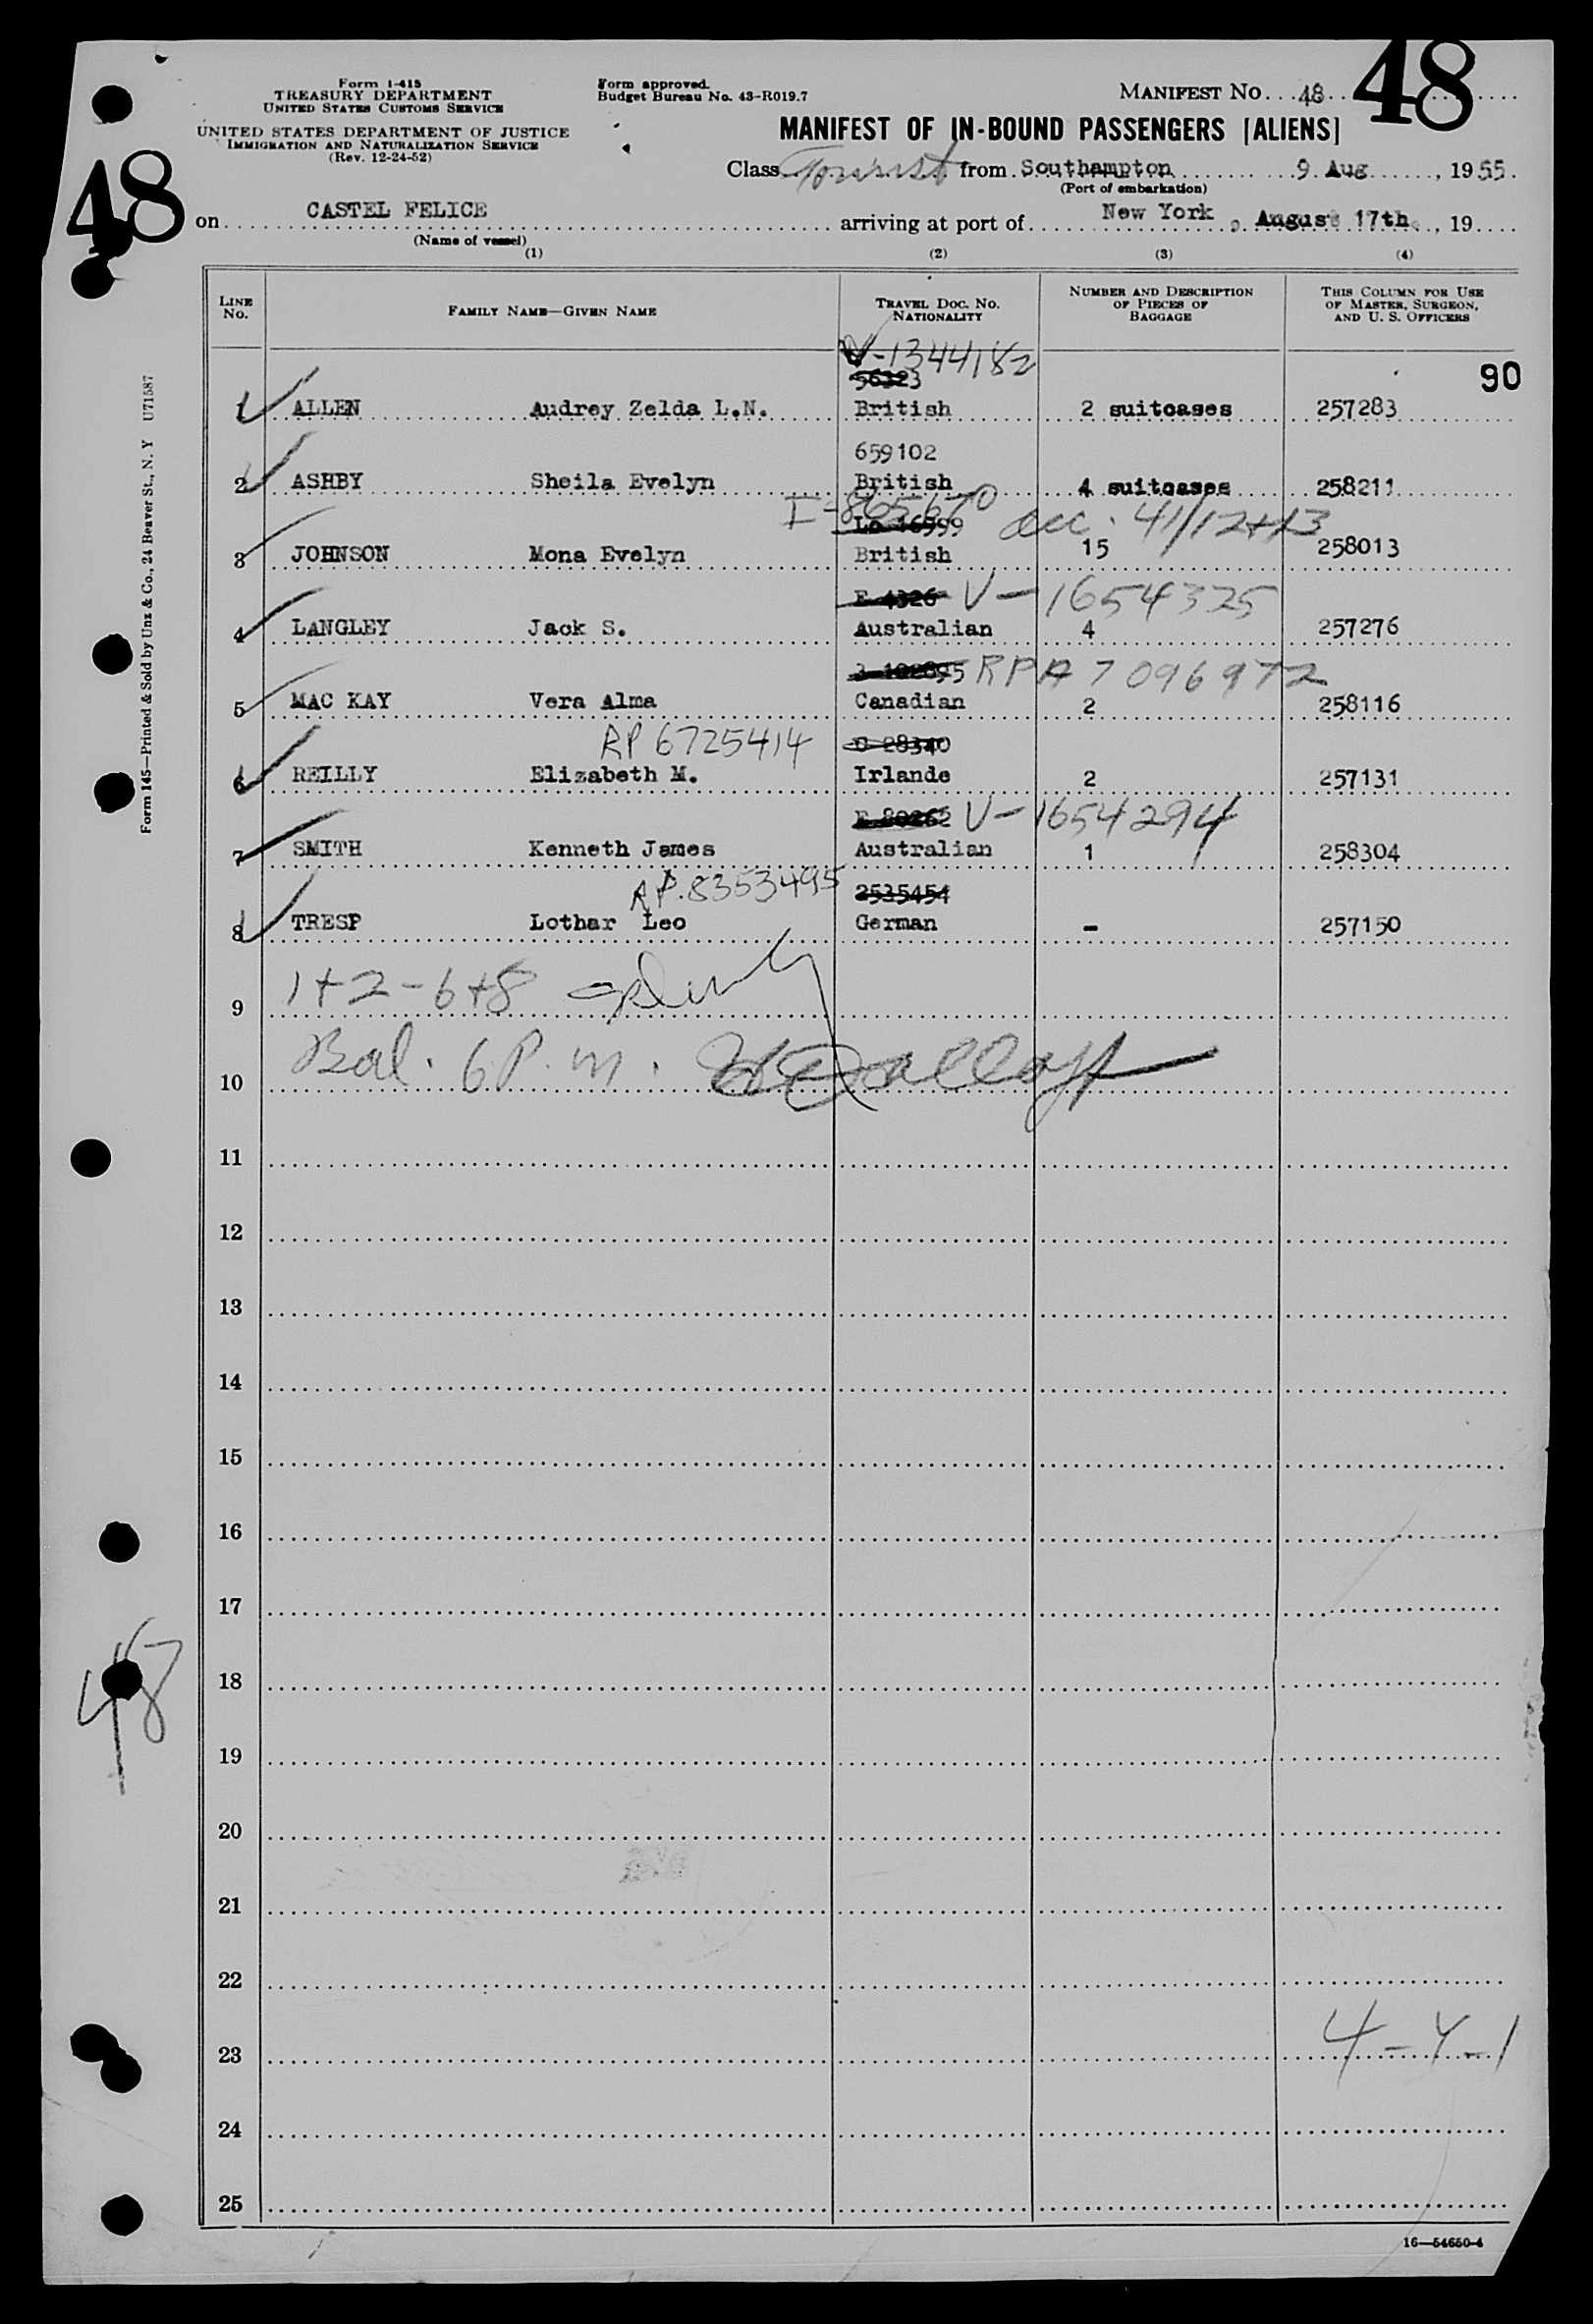 48
Form I-415
TREASURY DEPARTMENT
UNITED STATES CUSTOMS SERVICE
UNITED STATES DEPARTMENT OF JUSTICE
IMMIGRATION AND NATURALIZATION SERVICE
(Rev. 12-24-52)
Form approved.
Budget Bureau No. 43-R019.7
MANIFEST NO. 48
48
MANIFEST OF IN-BOUND PASSENGERS [ALIENS]
Class Tourist from Southampton 9 Aug, 1955.
(Port of embarkation)
on CASTEL FELICE arriving at port of New York, August 17th, 19
(Name of vessel)
(1) (2) (3) (4)
LINE NO. FAMILY NAME—GIVEN NAME TRAVEL DOC. NO. NATIONALITY NUMBER AND DESCRIPTION OF PIECES OF BAGGAGE THIS COLUMN FOR USE OF MASTER, SURGEON, AND U. S. OFFICERS
V-1344182
56323
90
1 ALLEN Audrey Zelda L.N. British 2 suitcases 257283
659102
2 ASHBY Sheila Evelyn British 4 suitcases 258211
I-865670
Lo 16999
41/12+13
3 JOHNSON Mona Evelyn British 15 258013
E 4326 V-1654325
4 LANGLEY Jack S. Australian 4 257276
3-102895 RPA 7096972
5 MAC KAY Vera Alma Canadian 2 258116
RP 6725414 28340
6 REILLY Elizabeth M. Irlande 2 257131
E 80262 V-1654294
7 SMITH Kenneth James Australian 1 258304
RP.8353495 2535454
8 TRESP Lothar Leo German - 257150
1+2-6+8
9
Bal. 6 P.m.
10
11
12
13
14
15
16
17
18
48
19
20
21
22
4-Y-1
23
24
25
16—54650-4
Form 145—Printed & Sold by Unz & Co., 24 Beaver St., N. Y U71587